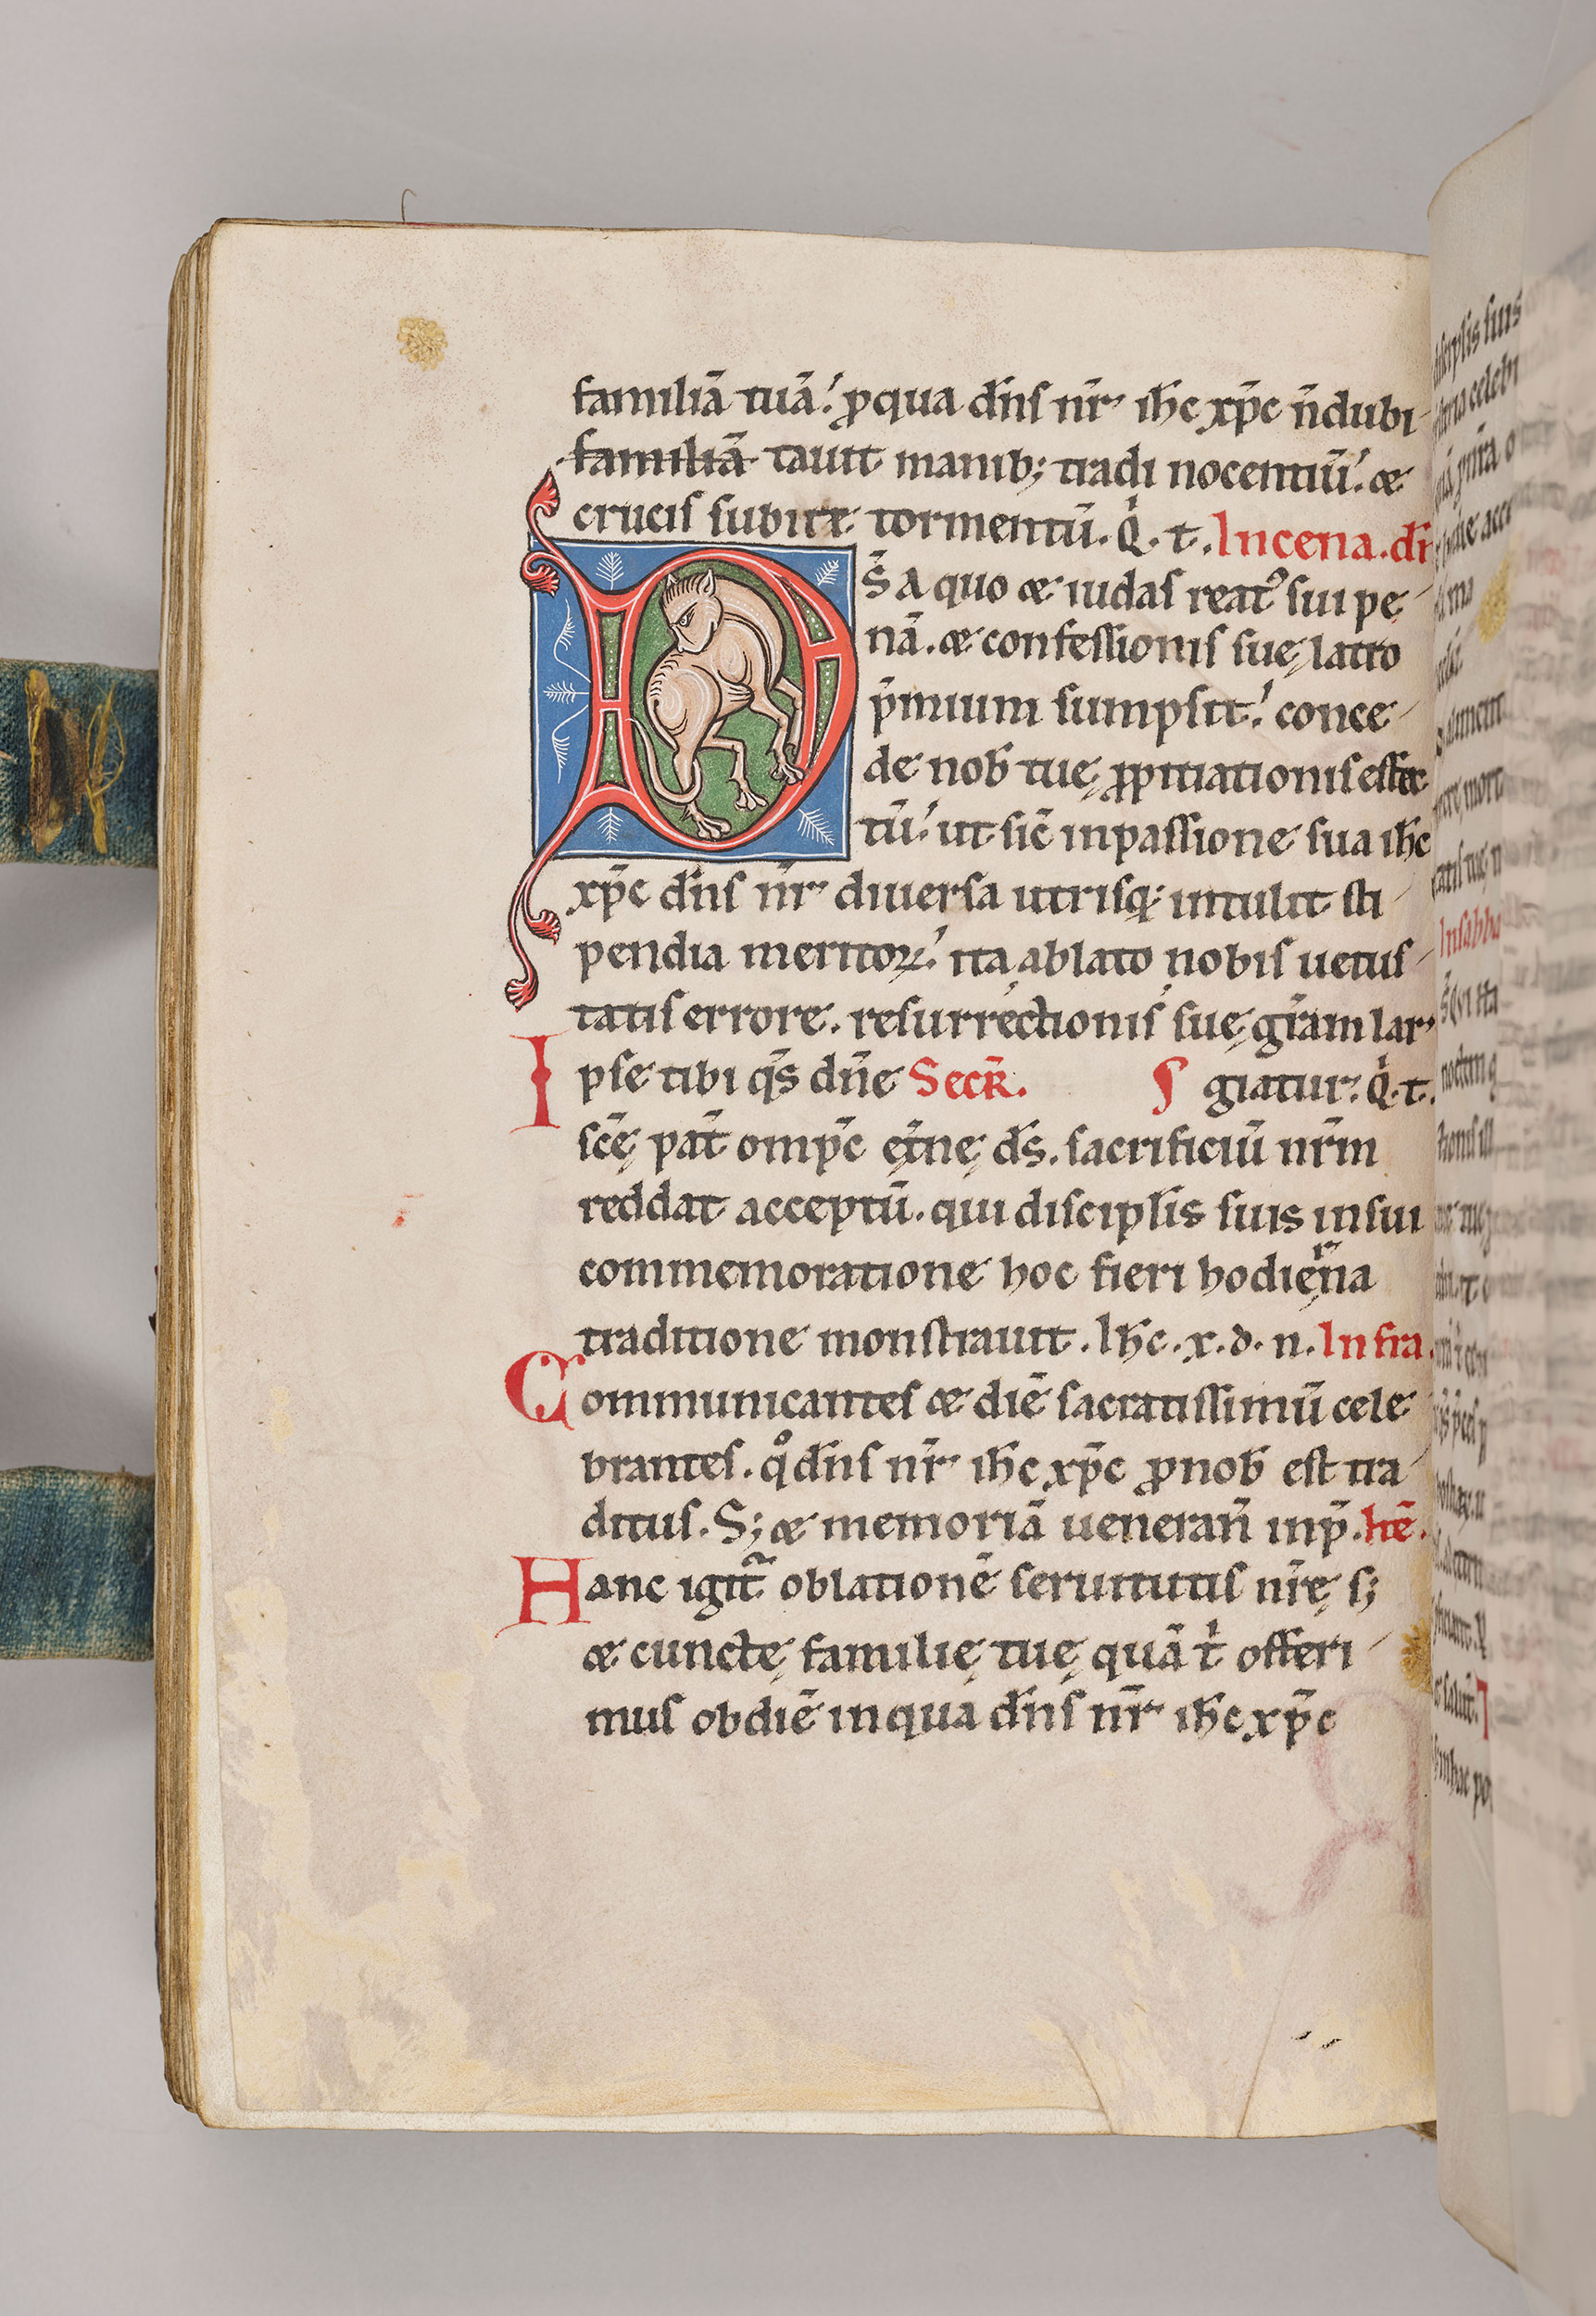 familiā tuā. ꝓ qua dn̄s nr̄ ih̄c xp̄c n̄ dubi
familiā tauit manib; tradi nocentiū. &
crucis subire tormentū. Q. t. In cena. dī
D s̄ A quo & iudas reatꝰ sui pe
nā. & confessionis suę latro
p̄mium sumpsit. conce
de nob̄ tuę ꝓpitiationis effec
tū. ut sic̄ in passione sua ih̄c
xp̄c dn̄s nr̄ diuersa utrisq; intulit sti
pendia meritoꝝ. ita ablato nobis uetus
tatis errore. resurrectionis suę gr̄am lar
Ipse tibi qs̄ dn̄e Secr̄. giatur. Q. t.
sc̄ę pat̄ omp̄c et̄nę ds̄. sacrificiū nr̄m
reddat acceptū. qui discipl̄is suis in sui
commemoratione hoc fieri hodierna
traditione monstrauit. Ih̄c. x. d. n. Infra.
Communicantes & diē sacratissimū cele
brantes. qͦ dn̄s nr̄ ih̄c xp̄c ꝓ nob̄ est tra
ditus. S; & memoriā ueneran̄ in p̄. itē.
Hanc igit̄ oblationē seruitutis nr̄ę s;
& cunctę familię tuę quā t̄ offeri
mus ob diē in qua dn̄s nr̄ ih̄c xp̄c